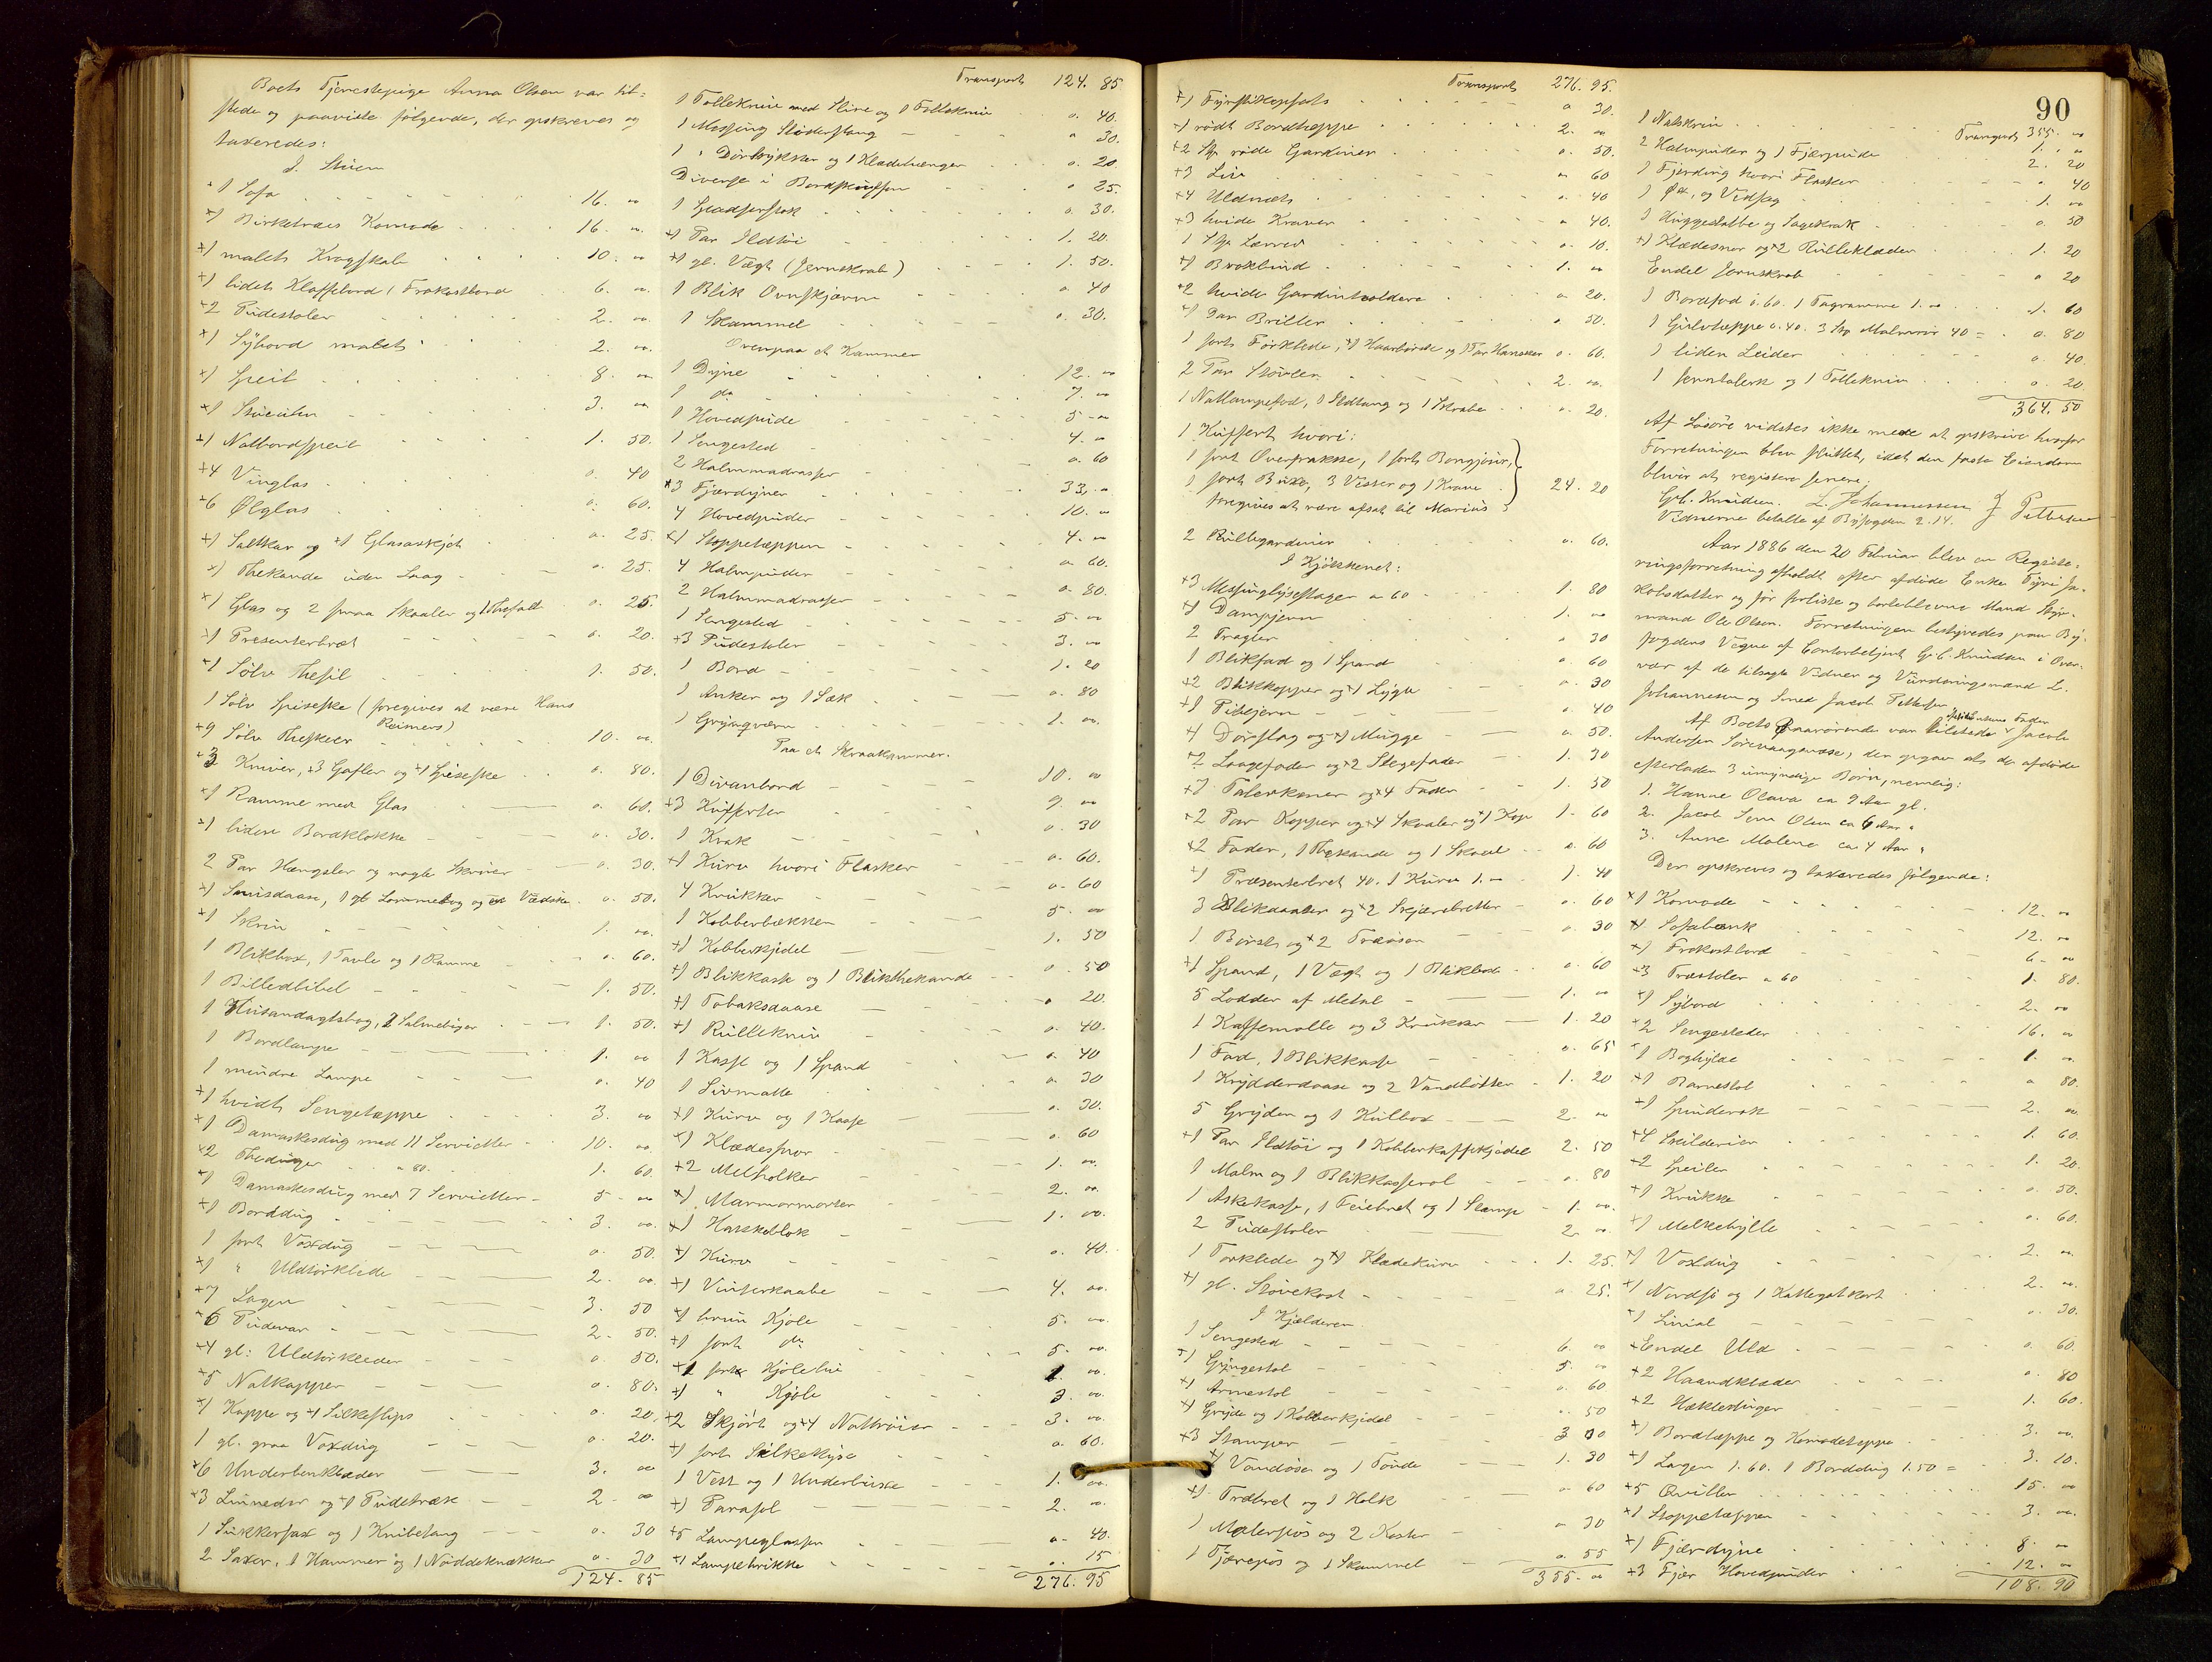 Boets Tjenestepige Anna Olsen var til-
stede og paaviste følgende, der opskreves og
taxeredes:
I Stuen
+1 Sofa 16. "
+1 Birketræes Komode 16. "
+1 malet Kragskab 10. "
+1 lidet Klapbord 1 Frokostbord 6. "
+2 Pudestoler 2. "
+1 Sybord malet 2. "
+1 Speil 8. "
+1 Stueuhr 3. "
+1 Natbordspeil 1. 50.
+4 Vinglas o. 40
+6 Ølglas o. 60.
+1 Saltkar og +1 Glasaskjet o. 25.
+1 Thekande uden Laag o. 25.
+1 Glas og 2 smaa Skaaler og 1 Thefadt o. 25.
+1 Presenterbret o. 20.
+1 Sølv Thesil 1. 50.
1 Sølv Spiseske (foregives at være Hans
Reimers)
+9 Sølv Theskeer 10. "
+3 Kniver, +3 Gafler og +1 Spiseske o. 80.
+1 Ramme med Glas o. 60.
+1 liden Bordklokke o. 30.
2 Par Hængsler og nogle Skruer o. 30.
+1 Snusdaase, 1 gl Lommebog og Vædske o. 50.
+1 Skrin 1. "
1 Blikbox, 1 Tavle og 1 Ramme o. 60.
1 Billedbibel 1. 50.
1 Husandagtsbog, 2 Salmebøger 1. 50.
1 Bordlampe 1. "
1 mindre Lampe o. 40
+1 hvidt Sengetæppe 3. "
+1 Damaskesdug med 11 Servietter 10. "
+2 Theduger a 80. 1. 60.
+1 Damaskesdug med 7 Servietter 5 - "
+1 Borddug 3. "
1 sort Voxdug o. 50.
+1 " Uldtørklæde 2. "
+7 Lagen 3. 50
+6 Pudevar 2. 50.
+4 gl: Uldtørklæder o. 50.
+5 Natkapper o. 80.
+1 Kappe og +1 Silkeslips o. 20.
1 gl. graa Voxdug o. 20.
+6 Underbenklæder 3. "
+3 Linneder og +1 Pudetræk 2. "
1 Sukkersax og 1 Knibetang o. 30
2 Saxer, 1 Hammer og 1 Nøddeknækker o. 30
124. 85
Transport 124. 85
1 Follekniv med Slire og 1 Follekniv o. 40.
1 Messing Stødestang o 30.
1 " Dørtrykker og 1 Klædehænger o. 20
Diverse i Bordskuffen o 25.
1 Spadserstok o. 30.
+1 Par Ildtøi 1. 20.
+1 gl. Vægt (Jernskrab) 1. 50.
1 Blik Ovnskjærm o 40
1 Skammel o. 30.
Ovenpaa et Kammer
1 Dyne 12. "
1 do 7. "
1 Hovedpude 5 - "
1 Sengested 4. "
2 Halmmadrasser o. 60
+3 Fjærdyner 33. "
4 Hovedpuder 10. "
+1 Stoppetæppen 4. "
4 Halmpuder o. 60.
2 Halmmadrasser o. 80.
1 Sengested 5. "
+3 Pudestoler 3. "
1 Bord 1. 20
1 Anker og 1 Sæk o. 80
1 Grynqværn 1. "
Paa et Skraakammer.
1 Divanbord 10. "
+3 Kufferter 9. "
1 Krak o. 30
+1 Kurv hvori Flasker o. 60.
4 Krukker o. 60
1 Kobberbækken 5. "
+1 Kobberkjedel 1. 50
+1 Blikkasse og 1 Blikthekande o. 50
+1 Tobaksdaase o 20.
+1 Rullekniv o. 40.
1 Kasse og 1 Spand o. 40
1 Sivmatte o. 30
+1 Kurv og 1 Kasse o. 30.
+1 Klædesnor o. 60
+2 Melholker 1. "
+1 Marmormorter 2. "
+1 Hakkeblok 1. "
+1 Kurv o. 40.
+1 Vinterkaabe 4. "
+1 brun Kjole 5. "
+1 sort do 5. "
+1 sort Kjoleliv 1. "
+1 " Kjole 3. "
+2 Skjørt og +4 Nattrøier 3. "
+1 sort Silkekyse o. 60.
1 Vest og 1 Underbuxe 1. "
+1 Parasol 2. "
+5 Lampeglasser o. 40.
+1 Lampetrikke o. 15
276. 95
Transport 276. 95.
+1 Fyrstikopsats o 30.
+1 rødt Bordteppe 2. "
+2 Stk røde Gardiner o. 50.
+3 Liv o 60
+4 Uldnæts o. 40
+3 hvide Kraver o 40.
1 Stk Lærred o. 10.
+1 Brokbind 1. "
+2 hvide Gardinholdere o 20.
+1 Par Briller o 50.
1 sort Forklæde, +1 Haarbørste og 1 Par Hansker o. 60.
2 Par Støvler 2. "
1 Natlampefod, 1 Ildtang og 1 Skrabe o. 20.
1 Kuffert hvori:
1 sort Overfrakke, 1 sort Bonjour,
1 sort Buxe, 3 Vester og 1 Krave 24. 20
foregives at være afsat til Marius
2 Rullegardiner o. 60.
I Kjøkkenet:
+3 Messinglysestager a 60 1. 80
+1 Dampjern 1. "
2 Tragter o 30
1 Blikfad og 1 Spand o. 60
+2 Blikkopper og +1 Lygte o 30
+1 Pibejern o. 40
+1 Dørslag og +1 Mugge o. 50.
+2 Laagefader og +2 Stegefader 1. 30
+7 Talerkener og +4 Fader 1. 50
+2 Par Kopper og +4 Skaaler og +1 Kop 1. 60
+2 Fader, 1 Thekande og 1 Skaal o. 60
+1 Præsenterbret 40. 1 Kurv 1. " 1. 40
3 Blikdaaser og +2 Skjærebretter o. 60
1 Børste og +2 Træøser o 30
+1 Spand, 1 Vægt og 1 Blikbøtte o. 60
5 Lodder af Metal 1. "
1 Kaffemølle og 3 Krukker 1. 20
1 Fad, 1 Blikkasse o. 65
1 Krydderdaase og 2 Vandbøtter 1. 20
5 Gryder og 1 Kulbox 2. "
+1 Par Ildtøi og 1 Kobberkaffekjedel 2. 50
1 Malm og 1 Blikkasserol o. 80
1 Askekasse, 1 Feiebret og 1 Stamp 1. "
2 Pudestoler 2. "
1 Forklæde og +1 Klædekurv 1. 25.
+1 gl. Støvekost o 25.
I Kjælderen.
1 Sengested 6. "
+1 Gyngestol 5. "
+1 Armestol o. 60
+1 Gryde og 1 Kobberkjedel o. 50
+3 Stamper 3 00
+1 Vandøse og 1 Tønde 1. 30
+1 Træbret og 1 Holk o 60
1 Malerpøs og 2 Koster o 30
1 Tjærepøs og 1 Skammel o. 55
355. "
90
Transport 355. "
1 Natskrin 1. "
2 Halmpuder og 1 Fjærpude 2. 20
1 Fjerding hvori Flasker o. 40
1 Øx, og Vedsag 1. "
1 Huggestabbe og Sagekrak o. 50
+1 Klædesnor og +2 Rulleklæder 1. 20
Endel Jernskrab o 20
1 Bordfod o. 60. 1 Tagramme 1. " 1. 60
1 Gulvtæppe o. 40. 3 Stk Malerier 40 = o. 80
1 liden Leider o. 40
1 Jerntalerk og 1 Follekniv o. 20.
364. 50
Af Løsøre vidstes ikke mere at opskrive hvorfor
Forretningen blev sluttet, idet den faste Eiendom
bliver at registere senere.
G. C. Knudsen. L. Johannessen J Pettersen
Vidnerne betalte af Byfogden 2. 14.
Aar 1886 den 20 Februar blev en Registe-
ringsforretning afholdt efter afdøde Enke Tyri Ja-
kobsdatter og før forliste og borteblevne Mand Styr-
mand Ole Olsen. Forretningen bestyredes paa By-
fogdens Vegne af Contorbetjent G. C. Knudsen i Over-
vær af de tilsagte Vidner og Vurderingsmænd L.
Johannesen og Smed Jacob Pettersen
Af Boets Paarørende var tilstede Enkens Fader Jacob
Andersen Sørevaagenæse, der opgav at de afdøde
efterlader 3 umyndige Børn, nemlig:
1. Hanne Olava ca 9 Aar gl.
2. Jacob Senn Olsen ca 6 Aar "
3. Anne Malene ca 4 Aar "
Der opskreves og taxeredes følgende:
+1 Komode 12. "
+1 Sofabænk 12. "
+1 Frokostbord 6. "
+3 Træstoler a 60 1. 80.
+1 Sybord 2. "
+2 Sengesteder 16. "
+1 Boghylde 1. "
+1 Barnestol o 80.
+1 Spinderok 2. "
+4 Skilderier 1. 60.
+2 Speiler 1. 20.
+1 Krukke o. 50.
+1 Melkehylle o. 60.
+1 Voxdug 2. "
+1 Nordsø og 1 Kattegatkart 2. "
+1 Linial o. 30.
+Endel Uld o. 60.
+2 Haandklæder o. 80
+2 Hækleduger 1. 60.
+1 Bordtæppe og Komodetæppe 3. "
+1 Lagen 1. 60. 1 Borddug 1. 50 = 3. 10.
+5 Qvitler 15. "
+1 Stoppetæppen 3. "
+1 Fjærdyne 8. "
+3 Fjær Hovedpuder 12. "
108. 90